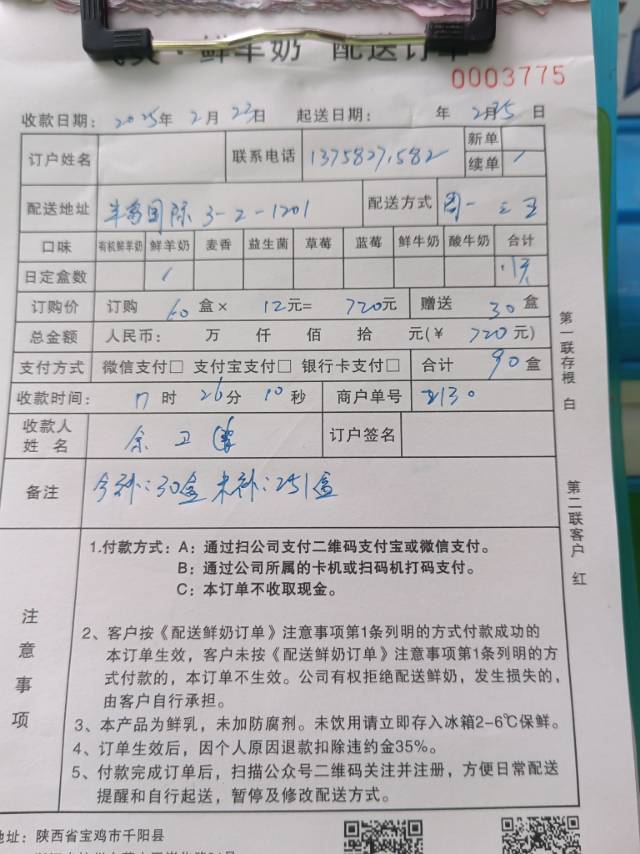 鲜羊奶 配送订单
0003775
收款日期: 2025年 2月 23日 起送日期: 年 2月25日
订户姓名 联系电话 新单
续单 /
配送地址 国际 3-2-1201 配送方式 周一 三 五
口味 有机鲜羊奶 鲜羊奶 麦香 益生菌 草莓 蓝莓 鲜牛奶 酸牛奶 合计
日定盒数 1
订购价 订购 60 盒× 12元= 720元 赠送 30盒
总金额 人民币: 万 仟 佰 拾 元(¥ 720元)
支付方式 微信支付□ 支付宝支付□ 银行卡支付□ 合计 90盒
收款时间: 17时 26分 10秒 商户单号 2130
收款人
姓 名 余卫 订户签名
备注 今补:30盒 未补:251盒
第一联存根 白
第二联客户 红
注意事项
1.付款方式: A: 通过扫公司支付二维码支付宝或微信支付。
B: 通过公司所属的卡机或扫码机打码支付。
C: 本订单不收取现金。
2、客户按《配送鲜奶订单》注意事项第1条列明的方式付款成功的
本订单生效，客户未按《配送鲜奶订单》注意事项第1条列明的方
式付款的，本订单不生效。公司有权拒绝配送鲜奶，发生损失的，
由客户自行承担。
3、本产品为鲜乳，未加防腐剂。未饮用请立即存入冰箱2-6℃保鲜。
4、订单生效后，因个人原因退款扣除违约金35%。
5、付款完成订单后，扫描公众号二维码关注并注册，方便日常配送
提醒和自行起送，暂停及修改配送方式。
地址: 陕西省宝鸡市千阳县